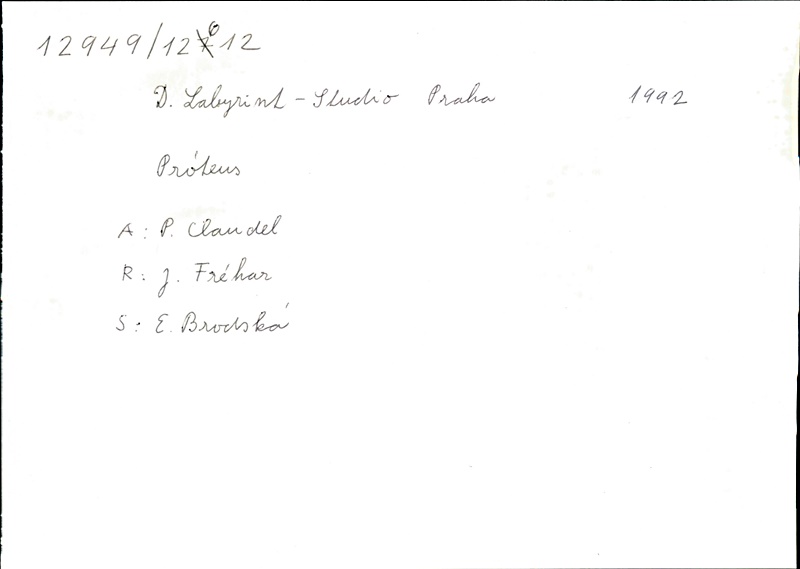 12949/12612
D. Labyrint - Studio Praha 1992
Próteus
A: P. Claudel
R: J. Fréhar
S: E. Brodská